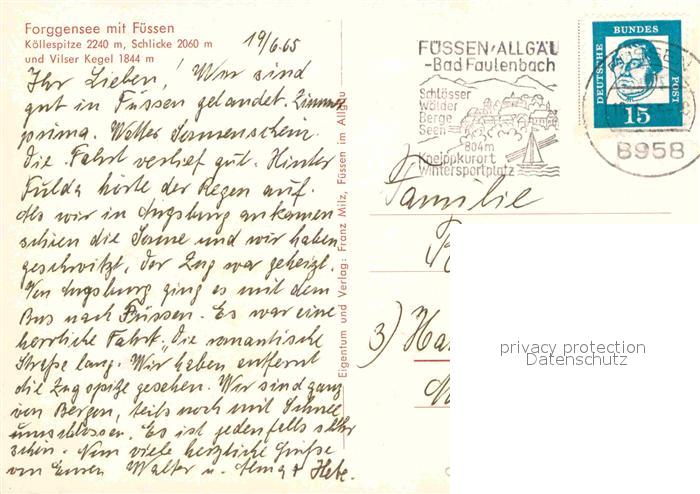 Forggensee mit Füssen
Köllespitze 2240 m, Schlicke 2060 m
und Vilser Kegel 1844 m
19/6.65
Ihr Lieben! Wir sind
gut in Füssen gelandet. Zimmer
prima. Wetter Sonnenschein.
Die Fahrt verlief gut. Hinter
Fulda hörte der Regen auf.
Als wir in Augsburg ankamen
schien die Sonne und wir haben
geschwitzt, der Zug war geheizt.
Von Augsburg ging es mit dem
Bus nach Füssen. Es war eine
herrliche Fahrt. Die romantische
Straße lang. Wir haben entfernt
die Zugspitze gesehen. Wir sind ganz
von Bergen, teils noch mit Schnee
umschlossen. Es ist jedenfalls sehr
schön. Nun viele herzliche Grüße
von Euren Walter u. Alma + Hebe.
Eigentum und Verlag: Franz Milz, Füssen im Allgäu
FÜSSEN/ALLGÄU
-Bad Faulenbach
Schlösser
Wälder
Berge
Seen
804m
Kneippkurort
Wintersportplatz
DEUTSCHE BUNDESPOST
15
8958
Familie
3) Ha
privacy protection
Datenschutz